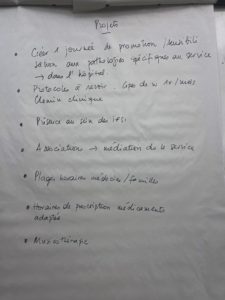 Projets
• Créer 1 journée de promotion / sensibili
sation aux pathologies spécifiques au service
→ dans l'hôpital.
• Protocoles à revoir. 1x/mois
Chemin clinique
• Présence au sein des IFSI
• Association → médiation de le service
• Plages horaires médecins / familles
• Horaires de prescription médicaments
adaptés
• Musicothérapie